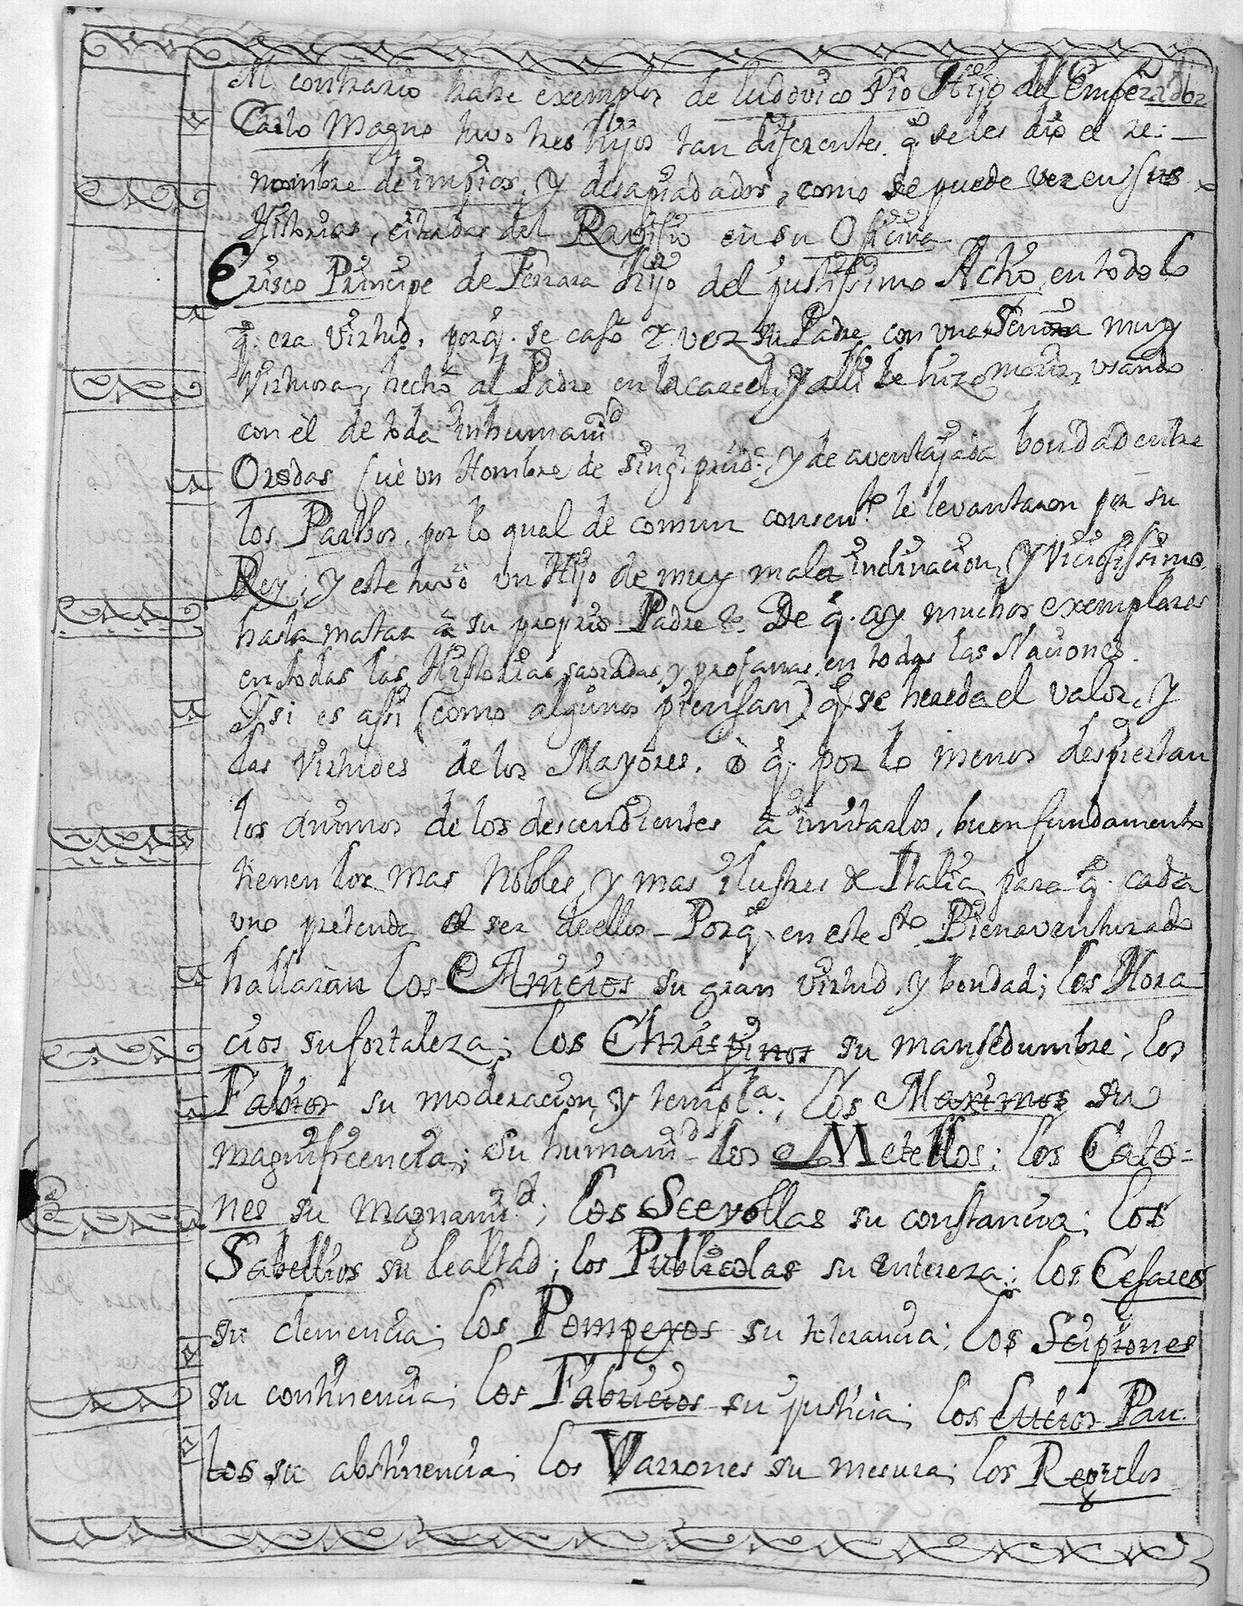 Al contrario trahe exemplos de Ludovico Pio Hijo del Emperador
Carlo Magno tuvo tres hijos tan diferentes q̃. se les dió el re:
nombre de impios, y desapiadados, como se puede ver en sus
Historias, citadas del Ravisio en su Oficina
Erisco Principe de Ferrara hijo del justissimo Acho, en todo lo
q̃. era virtud, porq̃. se casó 2ª. vez su Padre con una Señora muy
Virtuosa, hechó al Padre en la carcel, y allí le hizo morir, usando
con èl de toda inhumanid
Orodas fuè un Hombre de singr. prudª., y de aventajada bondad entre
los Parthos, por lo qual de comun consentº. le levantaron por su
Rey; y este tuvo un Hijo de muy mala inclinacion, y Viciosissimo,
hasta matar â su proprio Padre &. De q̃. ay muchos exemplares
en todas las Historias sagradas, y profanas, en todas las Naciones.
Y si es assi (como algunos piensan) q̃. se hereda el valor, y
las Virtudes de los Mayores, ò q̃. por lo menos despiertan
los animos de los descendientes â imitarlos, buen fundamento
tienen los mas Nobles, y mas ilustres de Italia para q̃. cada
uno pretenda el ser de ellos - Porq̃. en este Sto. Bienaventurado
hallaràn los Anicios su gran virtud, y bondad; los Hora-
cios su fortaleza; los Chrispinos su mansedumbre; los
Fabios su moderacion, y templª.; los Maximos su
magnificencia; su humanid los Metellos; los Cato=
nes su magnanid.; los Scevollas su constancia; los
Sabellios su lealtad; los Publicolas su entereza; los Cesares
su clemencia; los Pompeyos su tolerancia; los Scipiones
su continencia; los Fabricios su justicia; los Lucios Pau-
los su abstinencia; los Varrones su mesura; los Regulos